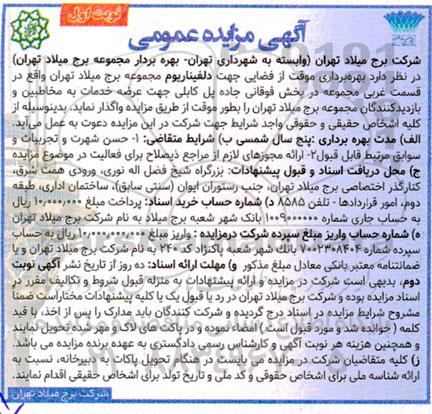 نوبت اول
آگهی مزایده عمومی
شرکت برج میلاد تهران (وابسته به شهرداری تهران- بهره بردار مجموعه برج میلاد تهران)
در نظر دارد بهره‌برداری موقت از فضایی جهت دلفیناریوم مجموعه برج میلاد تهران واقع در
قسمت غربی مجموعه در بخش فوقانی جاده پل کابلی جهت عرضه خدمات به مخاطبین و
بازدیدکنندگان مجموعه برج میلاد تهران را بصور موقت از طریق مزایده واگذار نماید. بدینوسیله از
کلیه اشخاص حقیقی و حقوقی واجد شرایط جهت شرکت در این مزایده دعوت به عمل می‌آید.
الف) مدت بهره برداری :پنج سال شمسی ب) شرایط متقاضی: ۱- حسن شهرت و تجربیات و
سوابق مرتبط قابل قبول۲- ارائه مجوزهای لازم از مراجع ذیصلاح برای فعالیت در موضوع مزایده
ج) محل دریافت اسناد و قبول پیشنهادات: بزرگراه شیخ فضل اله نوری، ورودی همت شرق،
کنارگذر اختصاصی برج میلاد تهران، جنب رستوران ایوان (سنتی سابق)، ساختمان اداری، طبقه
دوم، امور قراردادها - تلفن ۸۵۸۵ د) شماره حساب خرید اسناد: پرداخت مبلغ ۱۰,۰۰۰,۰۰۰ ریال
به حساب جاری شماره ۱۰۰۹۰۰۰۰۰۰ بانک شهر شعبه برج میلاد به نام شرکت برج میلاد تهران
ه) شماره حساب واریز مبلغ سپرده شرکت درمزایده : واریز مبلغ ریال به حساب
سپرده شماره ۷۰۰۲۳۰۸۴۰۴ بانک شهر شعبه پاکنژاد کد ۲۴۰ به نام شرکت برج میلاد تهران و یا
ضمانتنامه معتبر بانکی معادل مبلغ مذکور و) مهلت ارائه اسناد: ده روز از تاریخ نشر آگهی نوبت
دوم، بدیهی است شرکت در مزایده و ارائه پیشنهادات به منزله قبول شروط و تکالیف مقرر در
اسناد مزایده بوده و شرکت برج میلاد تهران در رد یا قبول یک یا کلیه پیشنهادات مختاراست ضمنا
مشروح شرایط مزایده در اسناد درج گردیده و شرکت کنندگان باید مدارک را پس از اخذ، با قید
کلمه ( خوانده شد و مورد قبول است ) امضاء نموده و در پاکت های لاک و مهر شده تحویل نمایند
و همچنین هزینه هر نوبت آگهی و کارشناس رسمی دادگستری به عهده برنده مزایده می باشد.
ز) کلیه متقاضیان شرکت در مزایده می بایست در هنگام تحویل پاکات به دبیرخانه، نسبت به
ارائه شناسه ملی برای اشخاص حقوقی و کد ملی و تاریخ تولد برای اشخاص حقیقی اقدام نمایند.
شرکت برج میلاد تهران